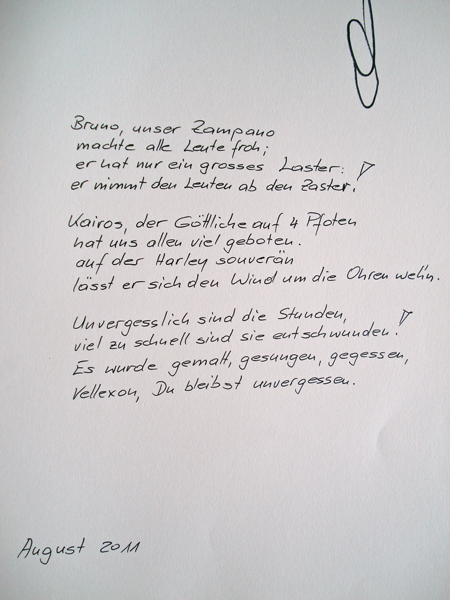 Bruno, unser Zampano
machte alle Leute froh;
er hat nur ein grosses Laster:
er nimmt den Leuten ab den Zaster!
Kairos, der Göttliche auf 4 Pfoten
hat uns allen viel geboten.
auf der Harley souverän
lässt er sich den Wind um die Ohren weh'n.
Unvergesslich sind die Stunden,
viel zu schnell sind sie entschwunden!
Es wurde gemalt, gesungen, gegessen,
Vellexon, Du bleibst unvergessen.
August 2011